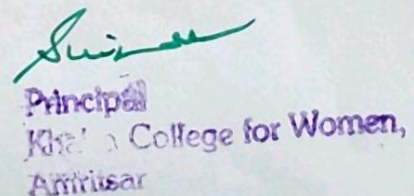 Principal
College for Women,
Amritsar